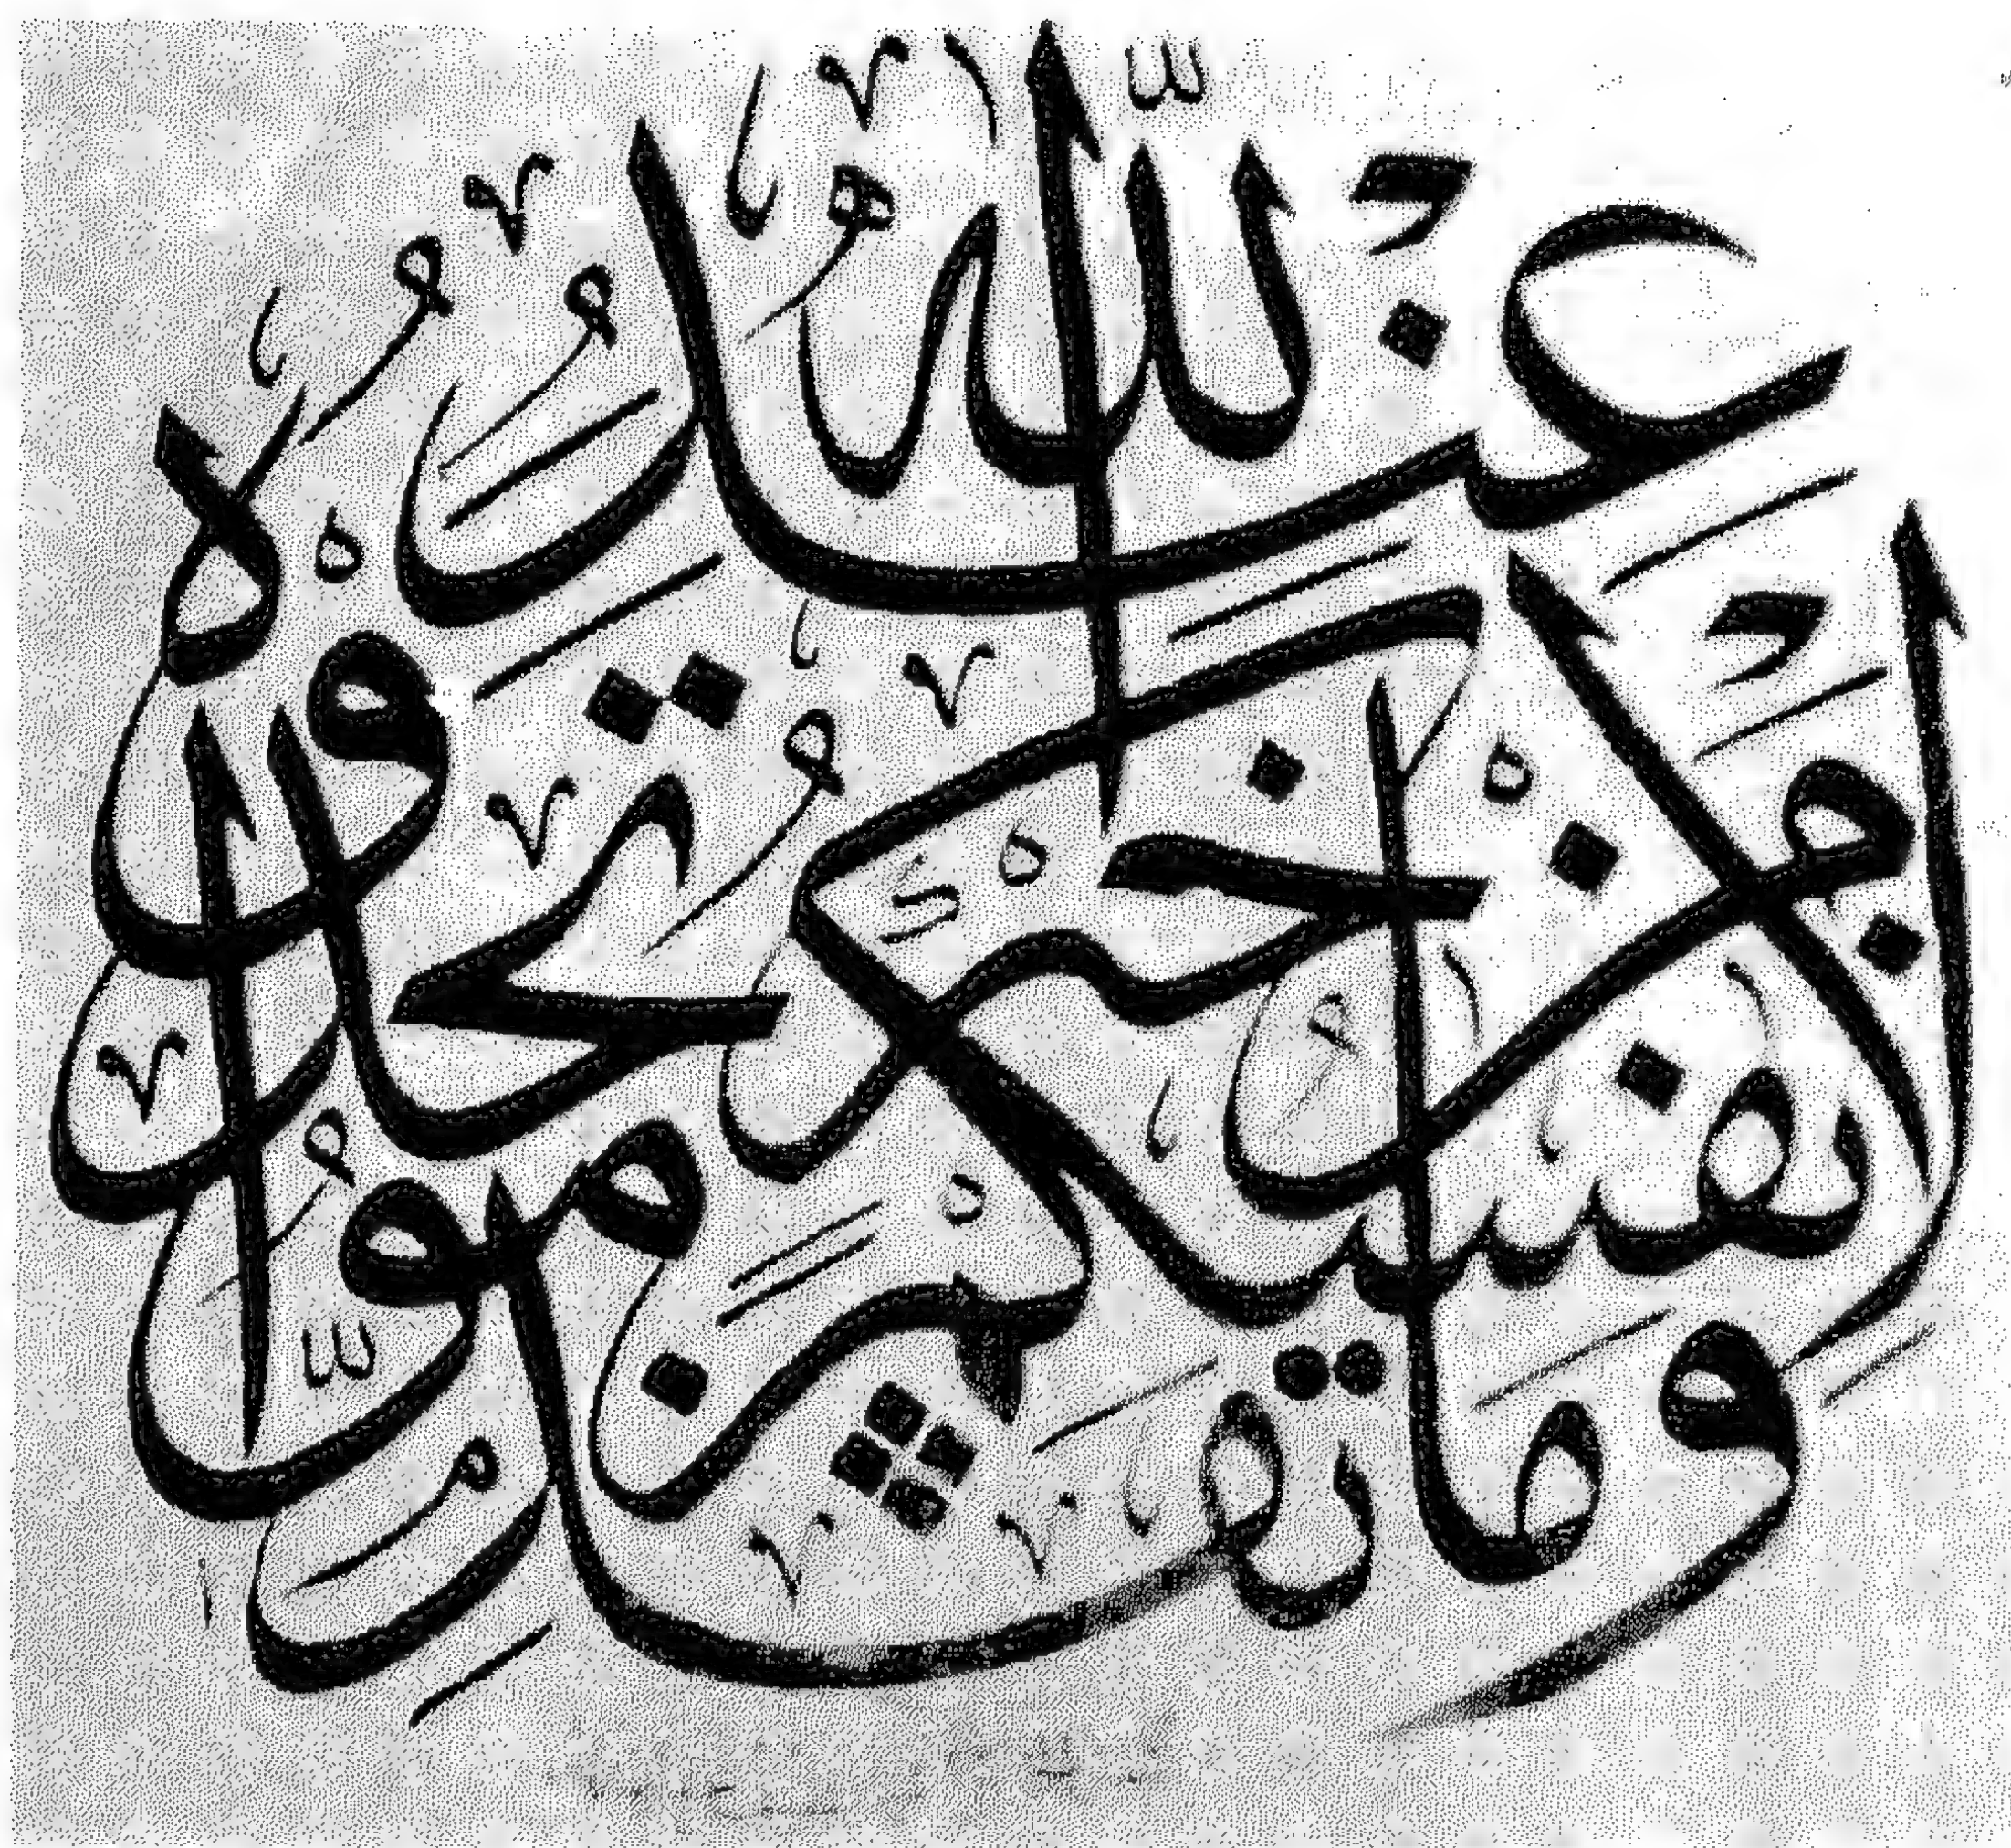 وما تقدموا لانفسكم من خير تجدوه عند الله